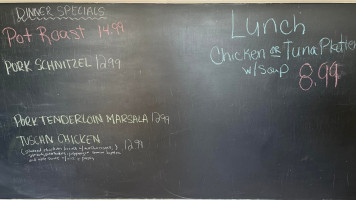 DINNER SPECIALS
Pot Roast 14.99
PORK SCHNITZEL 12.99
PORK TENDERLOIN MARSALA 12.99
TUSCAN CHICKEN 12.99
Lunch
Chicken or Tuna Platter
w/ Soup 8.99